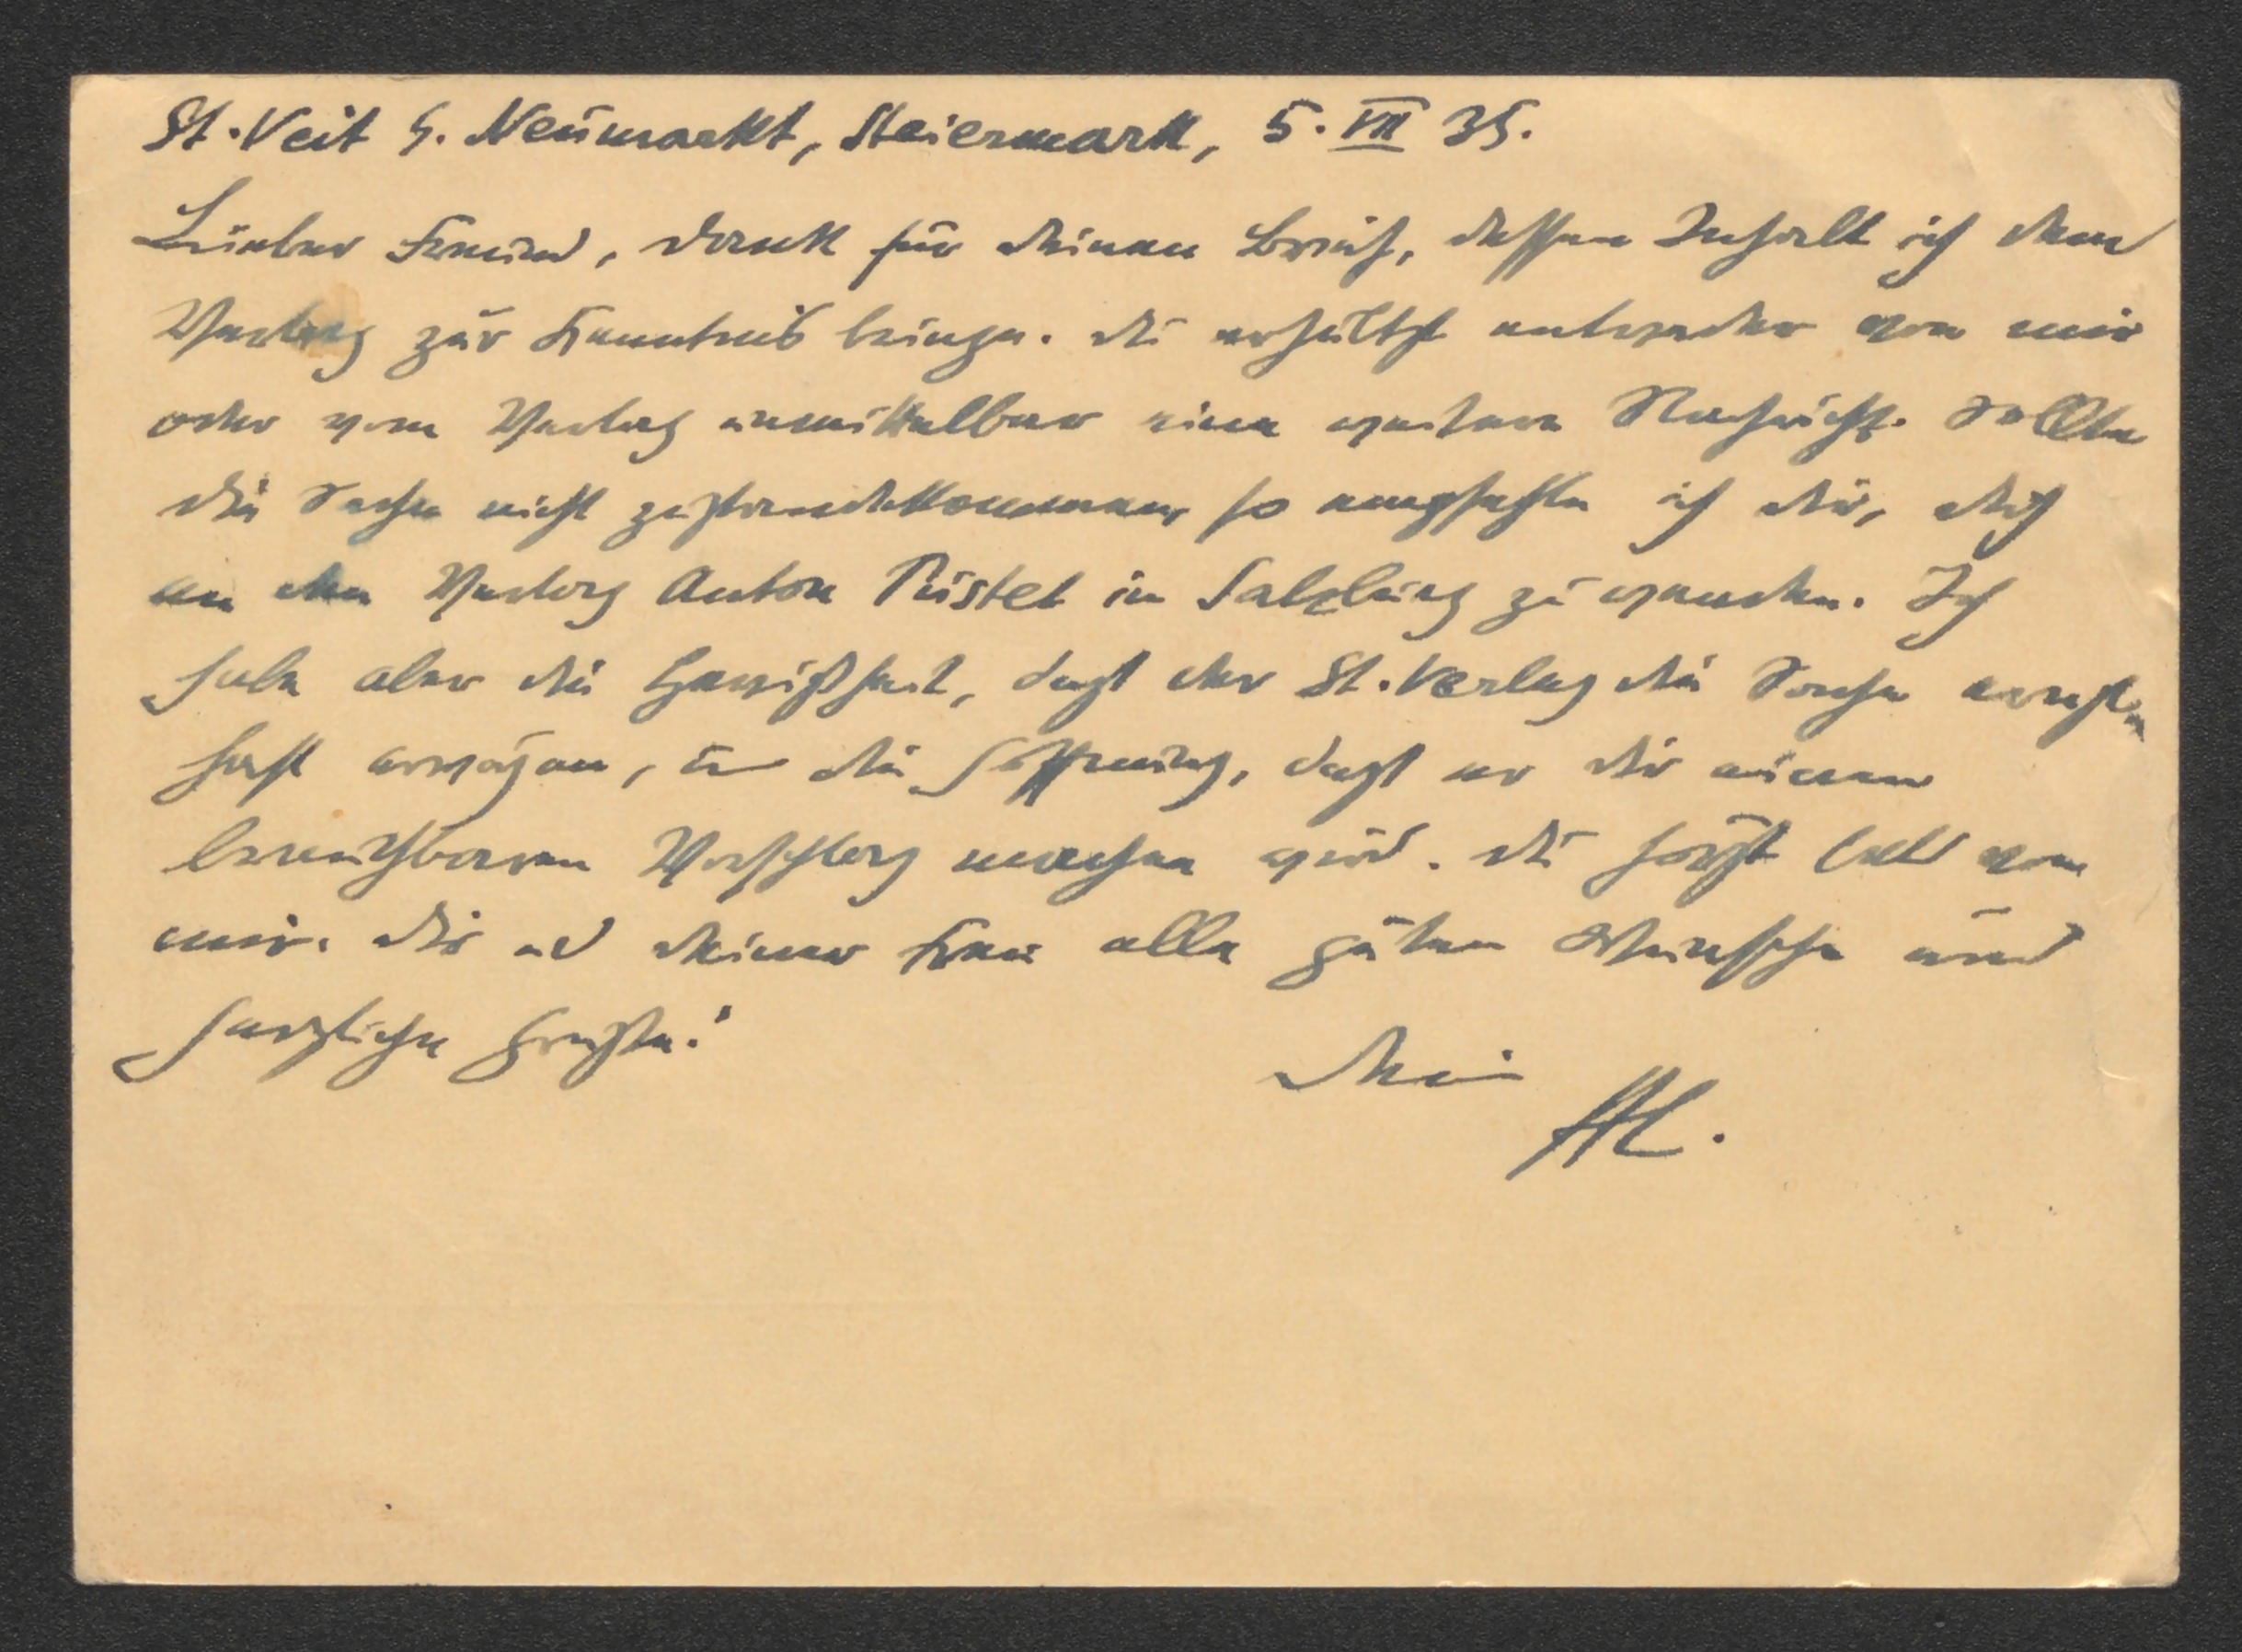 St. Veit b. Neumarkt, Steiermark, 5. VII 35.
Lieber Freund, Dank für Deinen Brief, dessen Inhalt ich dem
Verlag zur Kenntnis bringe. Du erhältst entweder von mir
oder vom Verlag unmittelbar eine weitere Nachricht. Sollte
die Sache nicht zustandekommen, so empfehle ich Dir, Dich
an den Verlag Anton Pustet in Salzburg zu wenden. Ich
habe aber die Gewißheit, dass der St. Verlag die Sache ernst-
haft erwägen, u die Hoffnung, dass er Dir einen
brauchbaren Vorschlag machen wird. Du hörst bald von
mir. Dir ud Deiner Frau alle guten Wünsche und
herzliche Grüsse!
Dein